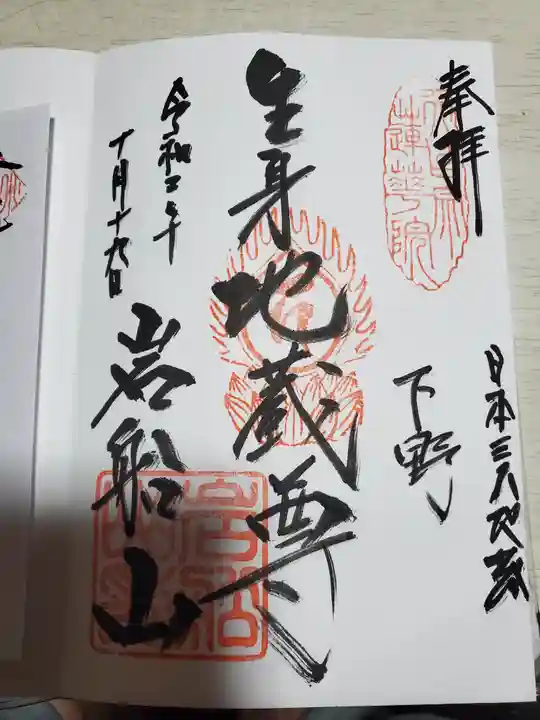 奉拝
日本三大地蔵
下野ノ
蓮華院
生身地蔵尊
岩船山
令和二年
十月十九日